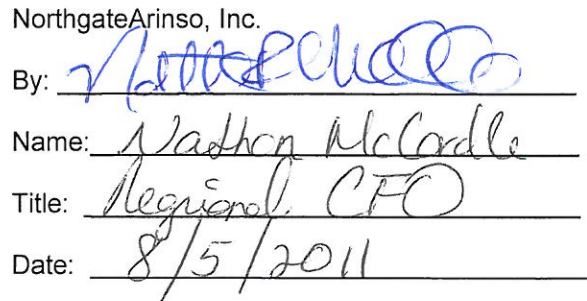 NorthgateArinso, Inc.
By:
Name: Nathan McCardle
Title: Regional CFO
Date: 8/5/2011